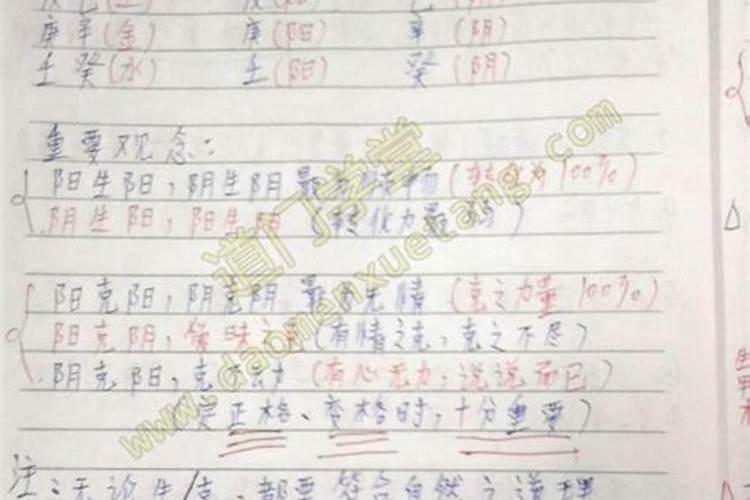 庚辛(金) 庚(阳) 辛(阴)
壬癸(水) 壬(阳) 癸(阴)
重要观念:
阳生阳,阴生阴 最 (转 为100%)
阴生阳,阳生阴(转化力最弱)
阳克阳,阴克阴 最为无情(克之力量100%)
阳克阴, (有情之克,克之不尽)
阴克阳,克 (有心无力,说说而已)
(定正格、变格时,十分重要)
注:无论生/克,都要符合自然之道理
道门学堂
www.daomenxuetang.com